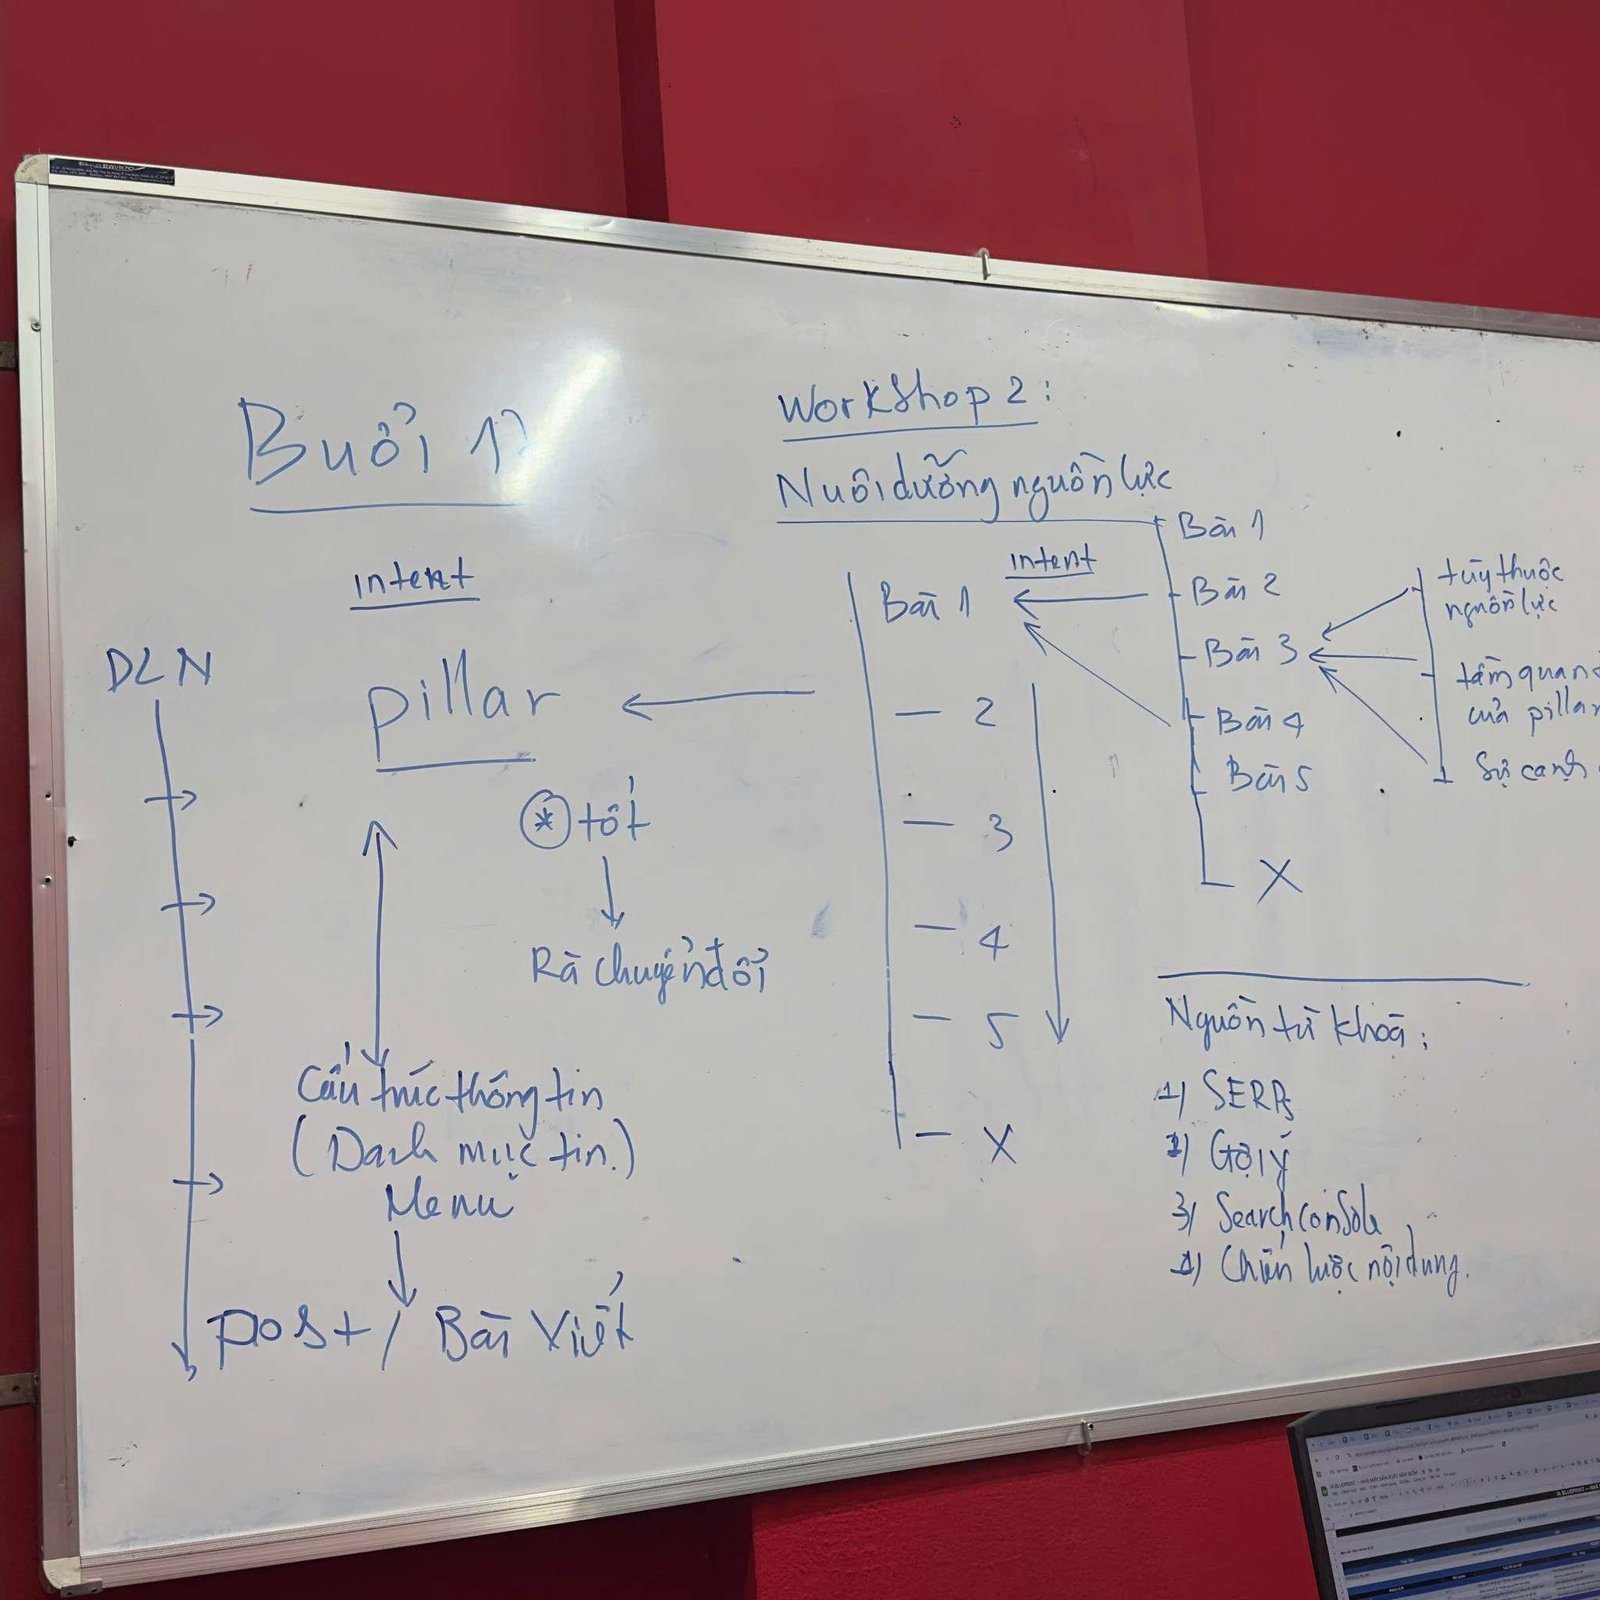 Buổi 1
intent
DLN
pillar
* tốt
Rà chuyển đổi
Cấu trúc thông tin
(Danh mục tin.)
Menu
post / Bài viết
Workshop 2:
Nuôi dưỡng nguồn lực
intent
Bài 1
2
3
4
5
X
Bài 1
Bài 2
Bài 3
Bài 4
Bài 5
X
tùy thuộc
nguồn lực
tầm quan
của pillar
Sự cạnh
Nguồn từ khoá:
1) SERPs
2) Gợi ý
3) Search console
4) Chiến lược nội dung.